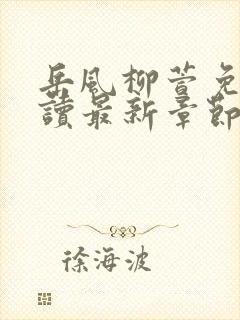 岳風柳萱免
讀最新章節
徐海波